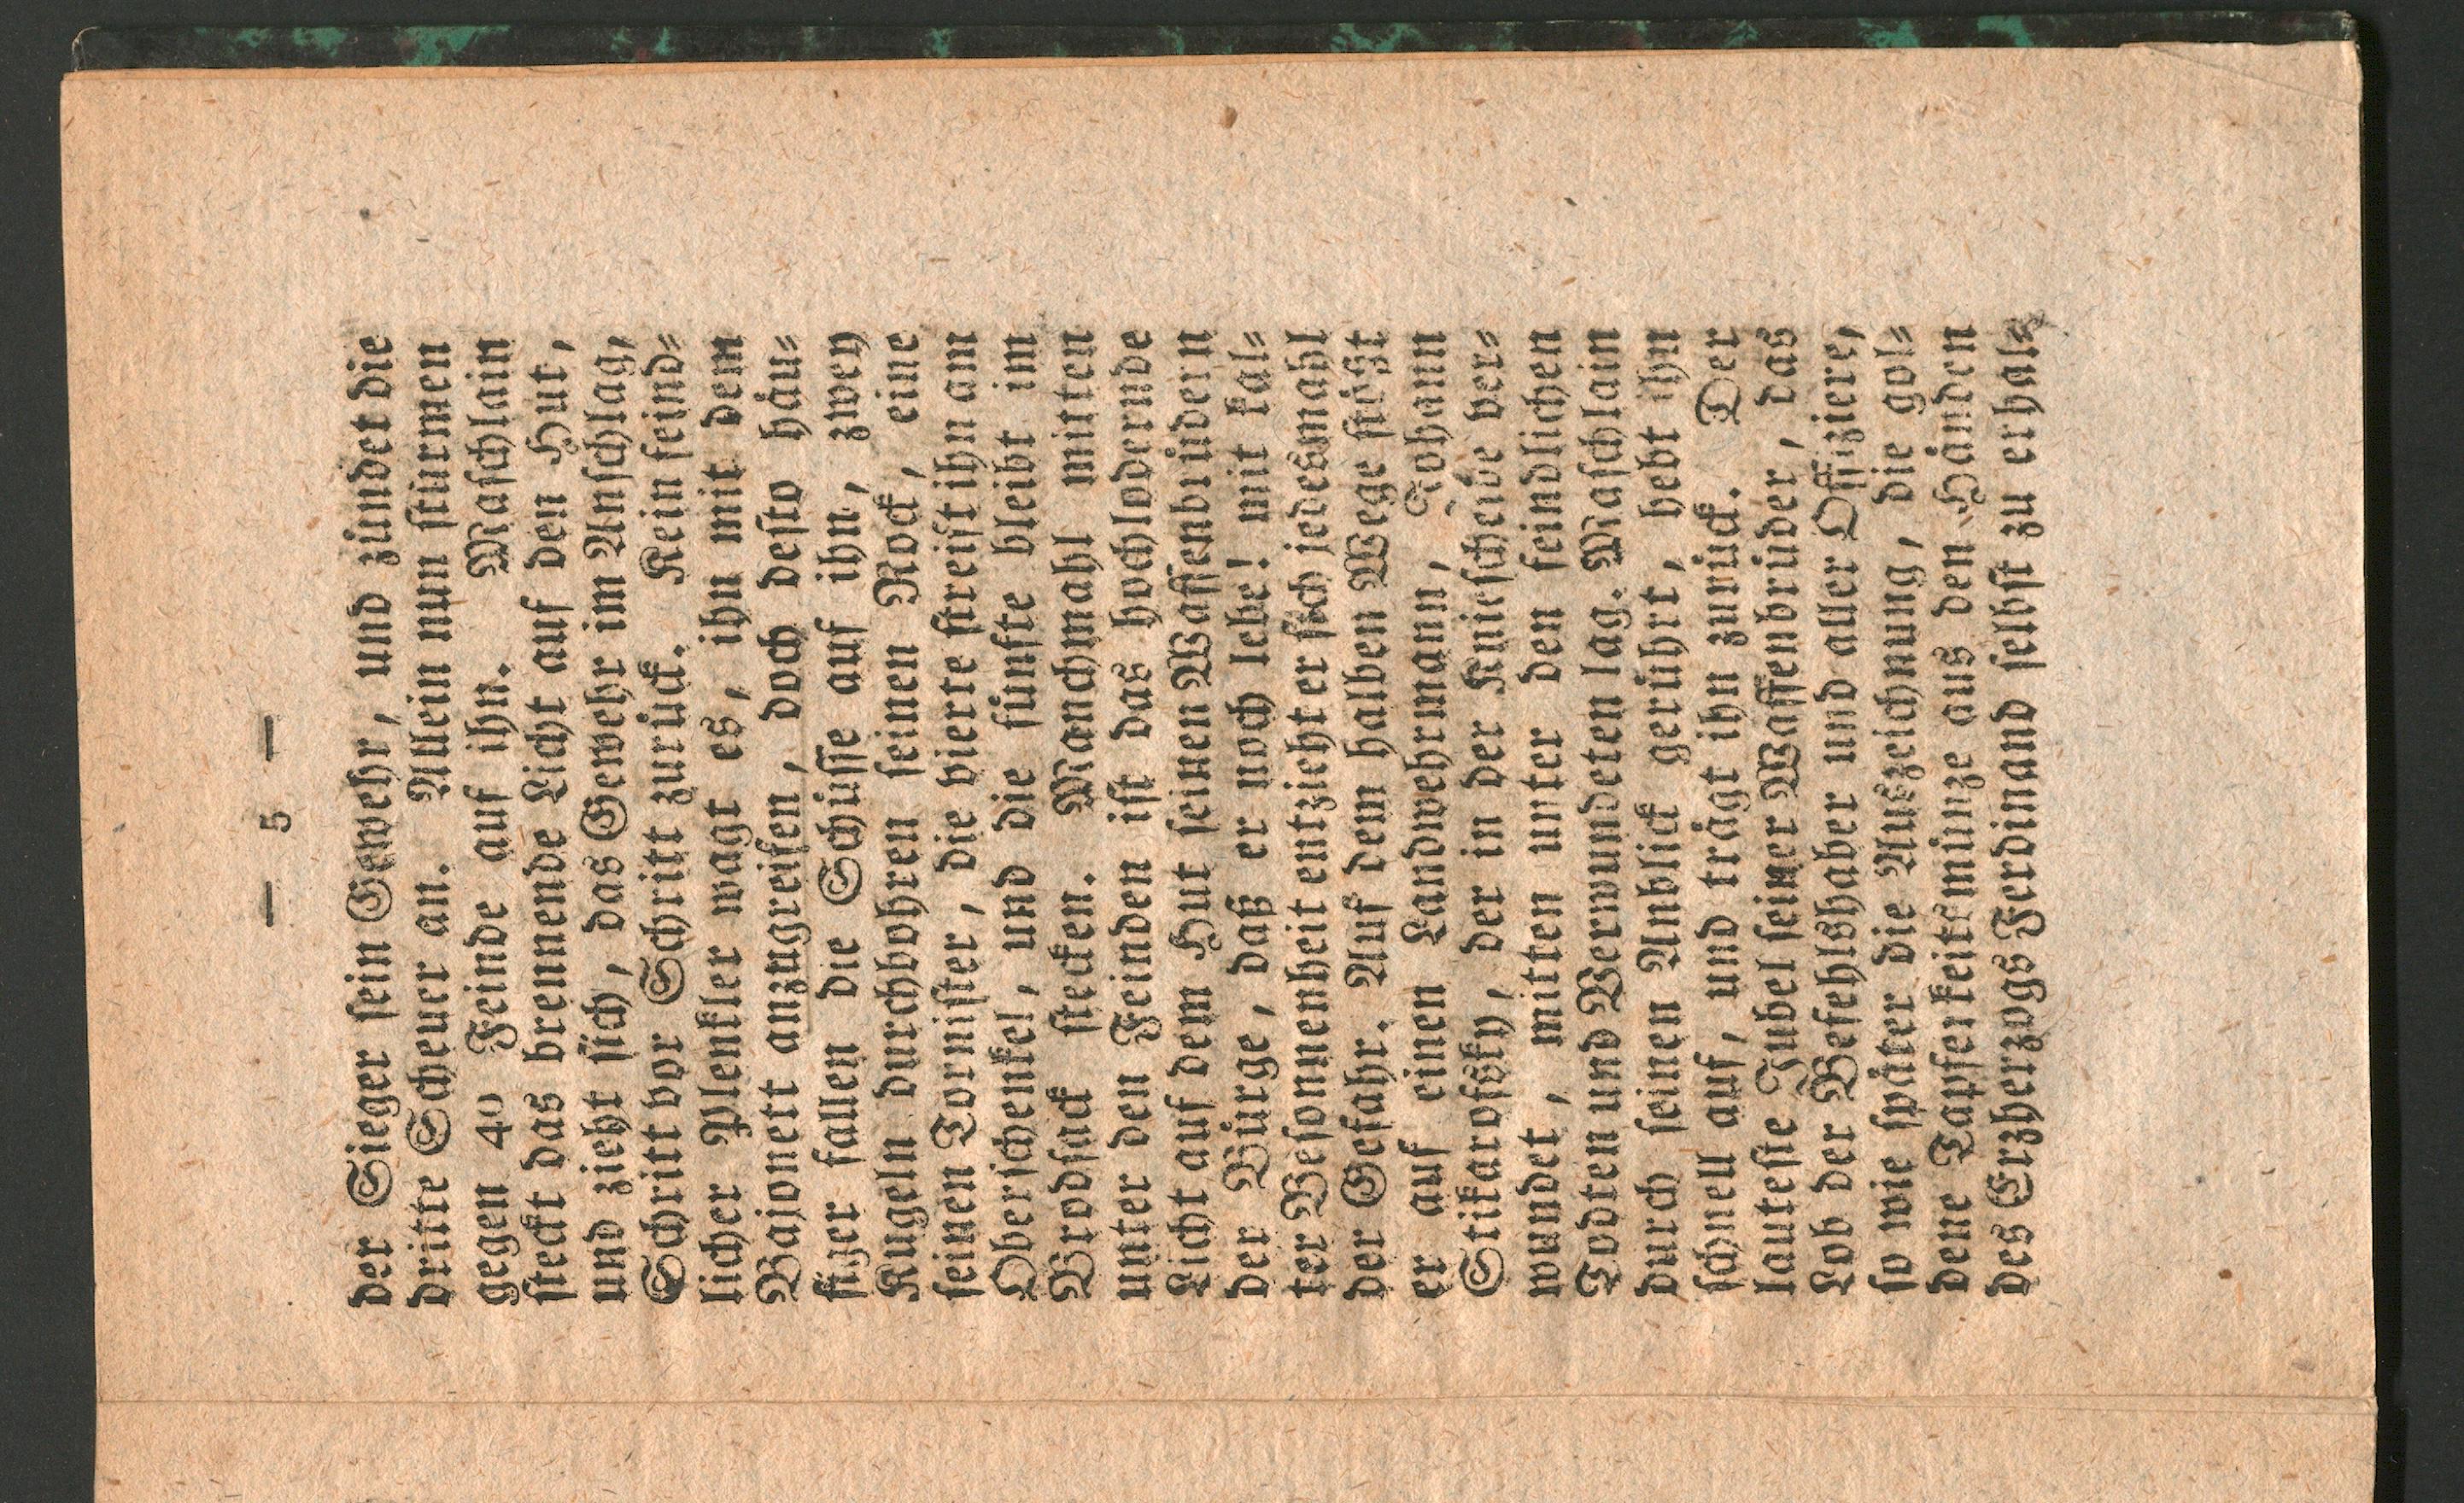 — 5 —
der Sieger sein Gewehr, und zündet die
dritte Scheuer an. Allein nun stürmen
gegen 40 Feinde auf ihn. Maschlain
steckt das brennende Licht auf den Hut,
und zieht sich, das Gewehr im Anschlag,
Schritt vor Schritt zurück. Kein feind=
licher Plenkler wagt es, ihn mit dem
Bajonett anzugreifen, doch desto häu=
figer fallen die Schüsse auf ihn, zwey
Kugeln durchbohren seinen Rock, eine
seinen Tornister, die vierte streift ihn am
Oberschenkel, und die fünfte bleibt im
Brodsack stecken. Manchmahl mitten
unter den Feinden ist das hochlodernde
Licht auf dem Hut seinen Waffenbrüdern
der Bürge, daß er noch lebe! mit kal=
ter Besonnenheit entzieht er sich jedesmahl
der Gefahr. Auf dem halben Wege stößt
er auf einen Landwehrmann, Johann
Stikarofsky, der in der Kniescheibe ver=
wundet, mitten unter den feindlichen
Todten und Verwundeten lag. Maschlain
durch seinen Anblick gerührt, hebt ihn
schnell auf, und trägt ihn zurück. Der
lauteste Jubel seiner Waffenbrüder, das
Lob der Befehlshaber und aller Offiziere,
so wie später die Auszeichnung, die gol=
dene Tapferkeitsmünze aus den Händen
des Erzherzogs Ferdinand selbst zu erhal=